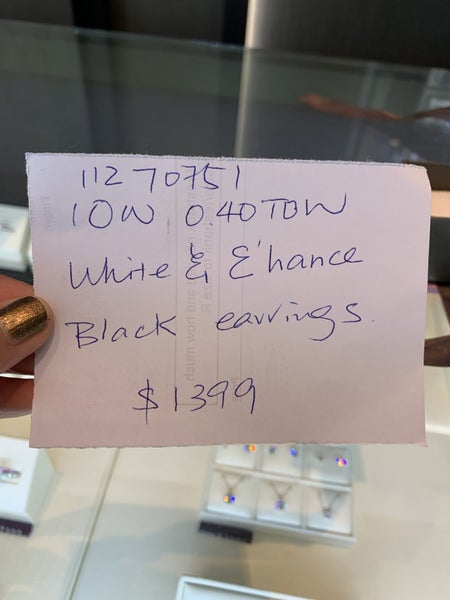 11270751
10W 0.40TDW
White & E'hance
Black earrings.
$1399